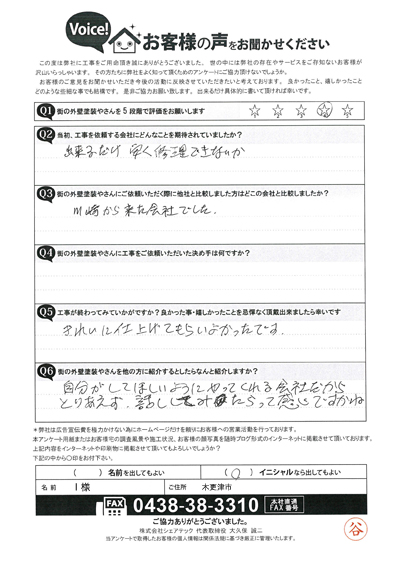 Voice!
お客様の声をお聞かせください
この度は弊社に工事をご用命頂き誠にありがとうございました。世の中には弊社の存在やサービスをご存知ないお客様が
沢山いらっしゃいます。その方たちに弊社をよく知って頂くためのアンケートにご協力頂けないでしょうか。
お客様のご意見をお聞かせいただき今後の活動に反映させていただきたいと考えております。良かったこと、嬉しかったこと
どのような些細な事でも結構です。是非ご協力お願い致します。出来るだけ具体的に書いて頂ければ幸いです。
Q1 街の外壁塗装やさんを5段階で評価をお願いします ☆ ☆ ☆ ☆ ☆
Q2 当初、工事を依頼する会社にどんなことを期待されていましたか?
出来るだけ安く修理できないか
Q3 街の外壁塗装やさんにご依頼いただく際に他社と比較しました方はどこの会社と比較しましたか?
川崎から来た会社でした。
Q4 街の外壁塗装やさんに工事をご依頼いただいた決め手は何ですか?
Q5 工事が終わってみていかがですか?良かった事・嬉しかったことを忌憚なく頂戴出来ましたら幸いです
きれいに仕上げてもらいよかったです.
Q6 街の外壁塗装やさんを他の方に紹介するとしたらなんと紹介しますか?
自分がしてほしいようにやってくれる会社だから
とりあえず、話してみたらって感じですかね
※弊社は広告宣伝費を極力かけない為にホームページだけを頼りにお客様への営業活動を行っております。
本アンケート用紙またはお客様宅の調査風景や施工状況、お客様の顔写真を随時ブログ形式のインターネットに掲載させて頂いております。
上記内容をインターネットや印刷物に掲載させて頂いてもよろしいでしょうか?
下記の中から〇印をお付け下さい。
( )名前を出してもよい (〇)イニシャルなら出してもよい
名前 I様 ご住所 木更津市
FAX 0438-38-3310 本社直通 FAX番号
ご協力ありがとうございました。
株式会社シェアテック 代表取締役 大久保 誠二
当アンケートで取得したお客様の個人情報は関係法規に基づき厳正に管理いたします。
谷